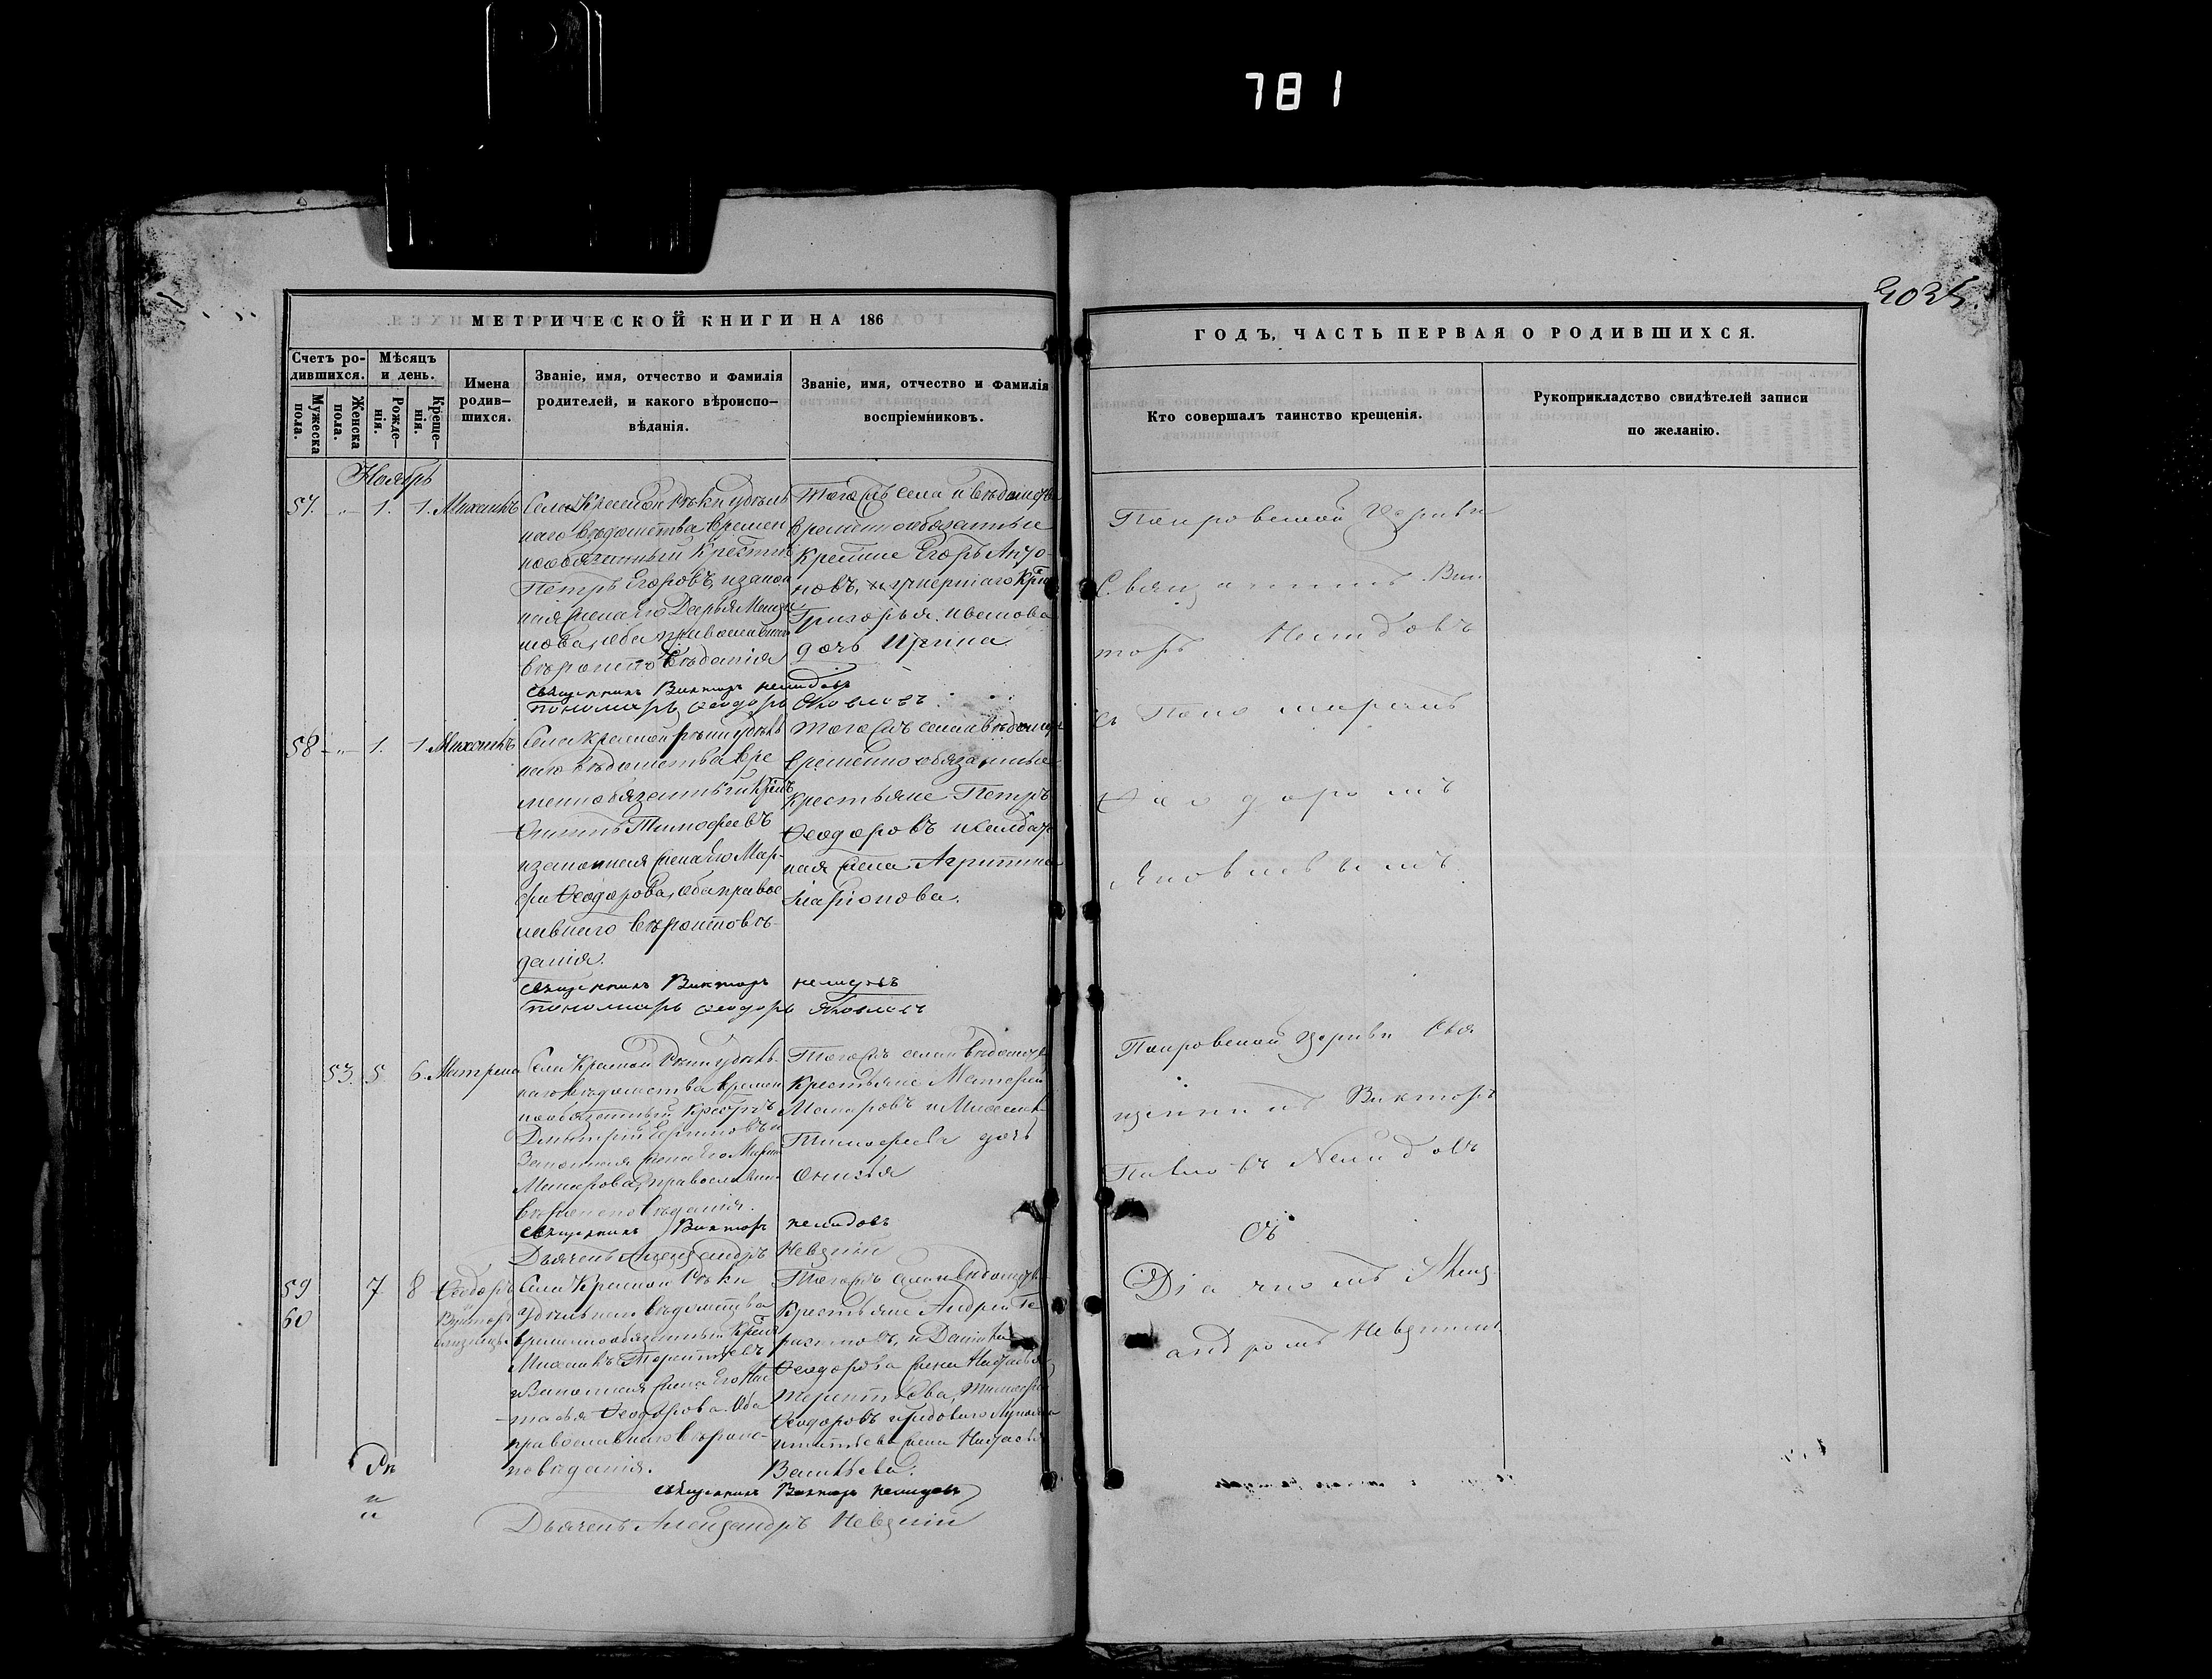 781
3035.
МЕТРИЧЕСКОЙ КНИГИ НА 186
ГОДЪ, ЧАСТЬ ПЕРВАЯ О РОДИВШИХСЯ.
Счетъ ро-
дившихся.
Мужеска
пола.
Женска
пола.
Мѣсяцъ
и день.
Рожде-
нія.
Креще-
нія.
Имена
родив-
шихся.
Званіе, имя, отчество и фамилія
родителей, и какого вѣроиспо-
вѣданія.
Званіе, имя, отчество и фамилія
воспріемниковъ.
Кто совершалъ таинство крещенія.
Рукоприкладство свидѣтелей записи
по желанію.
Ноябрь
57. " 1. 1. Михаилъ
Села Красной Рѣки удѣль
наго вѣдомства времен
нообязанный Крестьян
Петръ Егоровъ, и закон
ная жена его Дарья
оба православнаго
вѣроисповѣданія
Тогожъ села и вѣдомства
временнообязанные
Крестьяне Егоръ
и умершаго
Григорья Иванова
дочь Ирина
Священникъ Викторъ Нелидовъ
Пономарь Ѳеодоръ Яковлевъ.
Покровской Церкви
Священникъ Вик
торъ Нелидовъ
съ Пономаремъ
Ѳеодоромъ
Яковлевымъ.
58 " 1. 1. Михаилъ
Села Красной рѣки удѣль
наго вѣдомства вре
меннообязанный
Тимофеевъ
и законная жена его Мар-
фа Ѳеодорова, оба право
славнаго вѣроисповѣ-
данія.
Тогожъ села и вѣдомства
временнообязанные
крестьяне Петръ
Ѳеодоровъ и
ная жена Агрипина
Ларіонова.
Священникъ Викторъ Нелидовъ
Пономарь Ѳеодоръ Яковлевъ
53. 5 6. Матрена
Села Красной Рѣки удѣль
наго вѣдомства времен
нообязанный
Дмитрій
Законная жена его
Макарова, православнаго
вѣроисповѣданія.
Тогожъ села и вѣдомства
Крестьяне Матвей
Макаровъ и Михаила
Тимофеева дочь
Священникъ Викторъ Нелидовъ
Дьячекъ Александръ Невскій
Покровской Церкви Свя
щенникъ Викторъ
Павловъ Нелидовъ
Съ
Дьячкомъ Алекс
андромъ Невскимъ
59 7 8 Ѳеодоръ
60 Викторъ
близнецы
Села Красной Рѣки
Удѣльнаго вѣдомства
временнообязанный
Михаилъ Терентьевъ
и Законная жена его Нас
тасья Ѳеодорова Оба
православнаго вѣроис-
повѣданія.
Тогожъ села и вѣдомства
Крестьяне Андрей
и Данила
Ѳеодорова жена Настасья
Терентьева, Тимофей
Ѳеодоровъ и
жена Настасья
Васильева.
Священникъ Викторъ Нелидовъ
Дьячекъ Александръ Невскій